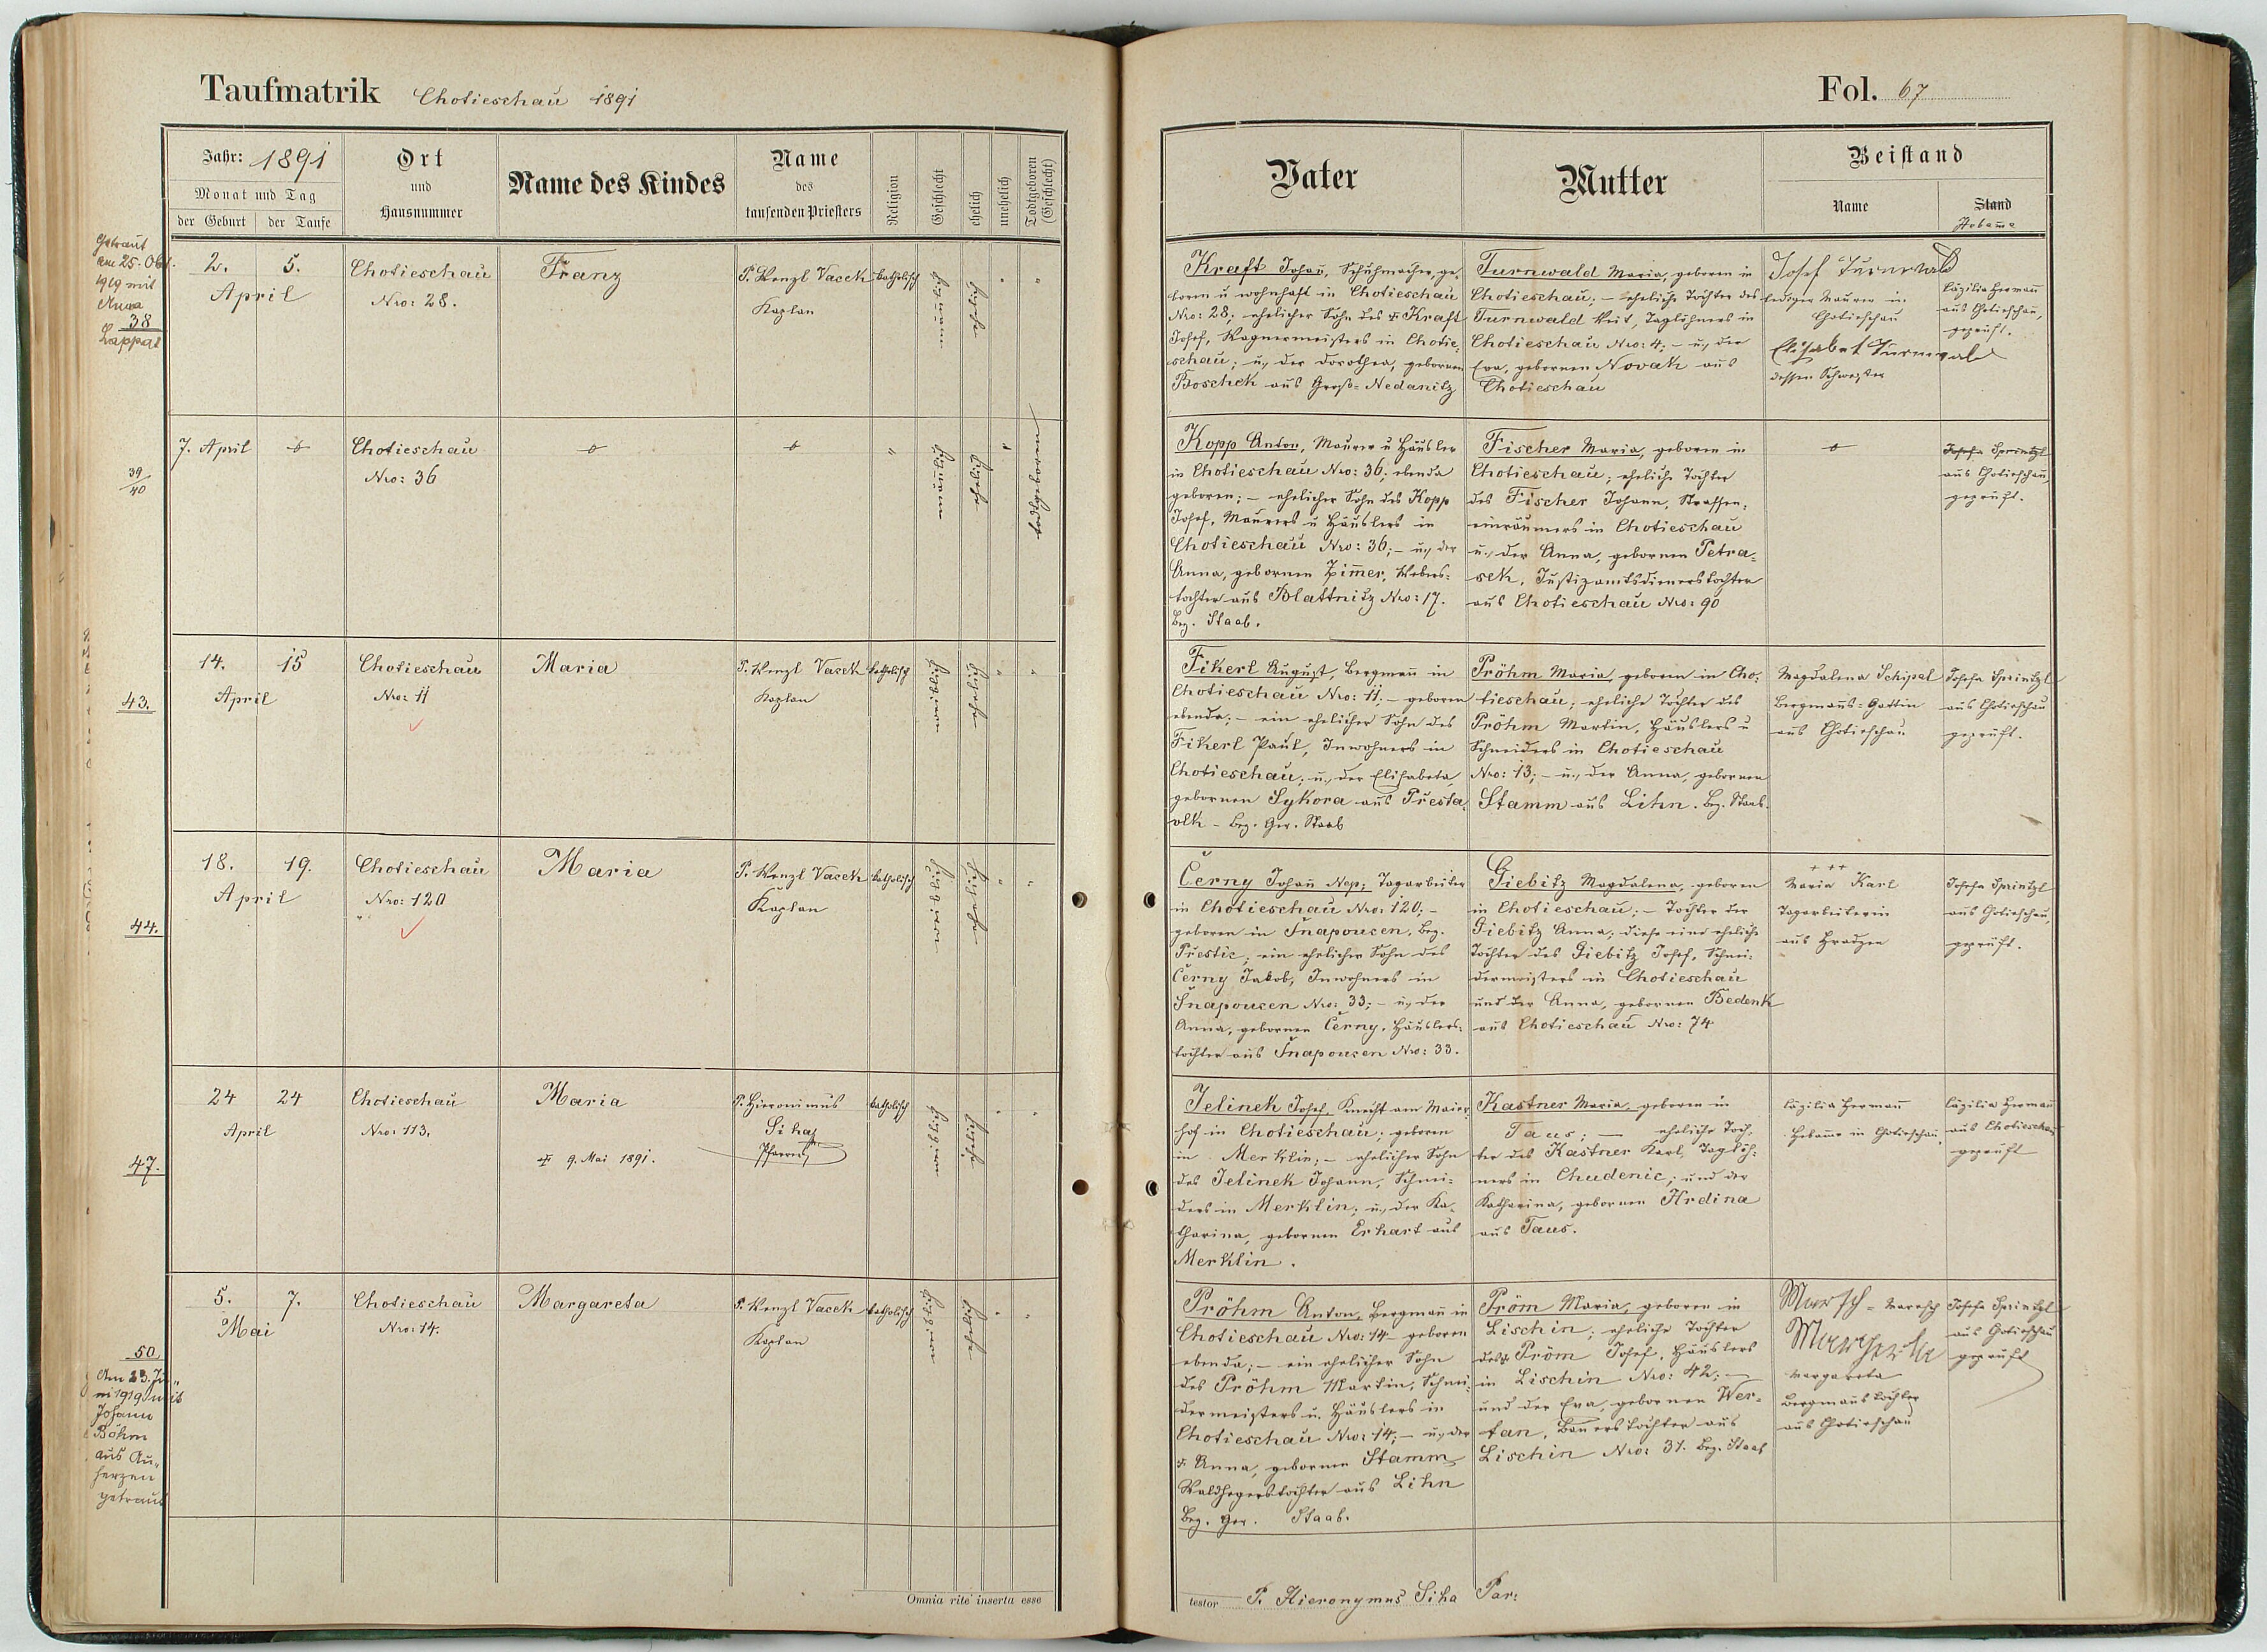 Taufmatrik Chotieschau 1891
Jahr: 1891
Monat und Tag
der Geburt
der Taufe
Ort
und
Hausnummer
Name des Kindes
Name
des
taufenden Priesters
Religion
Geschlecht
ehelich
unehelich
Todtgeboren
(Geschlecht)
Getraut
am 25. Okt.
1919 mit
Anna
38
Lappat
2.
5.
April
Chotieschau
Nro: 28.
Franz
P. Wenzl Vacek
Kaplan
katholisch
"
"
39/40
7. April
Chotieschau
Nro: 36
"
"
todtgeboren
43.
14.
15
April
Chotieschau
Nro: 11
Maria
P. Wenzl Vacek
Kaplan
katholisch
"
"
44.
18.
19.
April
Chotieschau
Nro: 120
Maria
P. Wenzl Vacek
Kaplan
katholisch
"
"
47.
24
24
April
Chotieschau
Nro: 113.
Maria
9. Mai 1891.
P. Hieronimus
Siha
Pfarrer
katholisch
"
"
50
Am 23. Ju„
ni 1919 mit
Johann
Böhm
aus Au„
herzen
getraut
5.
7.
Mai
Chotieschau
Nro: 14.
Margareta
P. Wenzl Vacek
Kaplan
katholisch
"
"
Omnia rite inserta esse
Fol. 67
Vater
Mutter
Beistand
Name
Stand
Hebamme
Kraft Johan̄, Schuhmacher, ge-
boren u wohnhaft in Chotieschau
Nro: 28; ehelicher Sohn des Kraft
Josef, Wagnermeisters in Chotie-
schau; u, der Dorothea, gebornen
Boschek aus Groß-Nedanitz
Turnwald Maria, geboren in
Chotieschau; – eheliche Tochter des
Turnwald Veit, Taglöhners in
Chotieschau Nro: 4; – u, der
Eva, gebornen Novak aus
Chotieschau
Josef Turnwald
lediger Maurer in
Chotieschau
Elisabet Turnwald
dessen Schwester
Cäzilia Herman̄
aus Chotieschau,
geprüft.
Kopp Anton, Maurer u Häusler
in Chotieschau Nro: 36; ebenda
geboren; – ehelicher Sohn des Kopp
Josef, Maurers u Häuslers in
Chotieschau Nro: 36; – u, der
Anna, gebornen Zim̄er, Webers-
tochter aus Blattnitz Nro: 17.
Bez. Staab.
Fischer Maria, geboren in
Chotieschau; eheliche Tochter
des Fischer Johann, Strassen-
einräumers in Chotieschau
u, der Anna, gebornen Petra-
sek, Justizamtsdienerstochter
aus Chotieschau Nro: 90
Josefa Sprintzl
aus Chotieschau,
geprüft.
Fikerl August, Bergman̄ in
Chotieschau Nro: 11; – geboren
ebenda; – ein ehelicher Sohn des
Fikerl Paul, Inwohners in
Chotieschau; u, der Elisabeta,
gebornen Sykora aus Přesta-
vlk – Bez. Ger. Staab
Pröhm Maria, geboren in Cho-
tieschau; eheliche Tochter des
Pröhm Martin, Häuslers u
Schneiders in Chotieschau
Nro: 13; – u, der Anna, gebornen
Stamm aus Lihn. Bez. Staab.
Magdalena Schipal
Bergman̄s-Gattin
aus Chotieschau
Josefa Sprintzl
aus Chotieschau
geprüft.
Černy Johan̄ Nep; Tagarbeiter
in Chotieschau Nro: 120; –
geboren in Šnapousen, Bez.
Přestic; ein ehelicher Sohn des
Černy Jakob, Inwohners in
Šnapousen Nro: 33; – u, der
Anna, gebornen Černy, Häuslers-
tochter aus Šnapousen Nro: 33.
Giebitz Magdalena, geboren
in Chotieschau; – Tochter der
Giebitz Anna; diese eine eheliche
Tochter des Giebitz Josef, Schnei-
dermeisters in Chotieschau
und der Anna, gebornen Bedenk
aus Chotieschau Nro: 74
+++
Maria Karl
Tagarbeiterin
aus Hradzen
Josefa Sprintzl
aus Chotieschau,
geprüft.
Jelinek Josef, Knecht am Maier-
hof in Chotieschau; geboren
in Merklin; – ehelicher Sohn
des Jelinek Johann, Schnei-
ders in Merklin; u, der Ka-
tharina, gebornen Erhart aus
Merklin.
Kastner Maria, geboren in
Taus; – eheliche Toch-
ter des Kastner Karl, Taglöh-
ners in Chudenic; und der
Katharina, gebornen Hrdina
aus Taus.
Cäzilia Herman̄
Hebam̄e in Chotieschau,
Cäzilia Herman̄
aus Chotieschau
geprüft
Pröhm Anton, Bergman̄ in
Chotieschau Nro: 14 – geboren
ebenda; – ein ehelicher Sohn
des Pröhm Martin, Schnei-
dermeisters u. Häuslers in
Chotieschau Nro: 14; – u, der
Anna, gebornen Stamm,
Waldhegerstochter aus Lihn
Bez. Ger. Staab.
Pröm Maria, geboren in
Lischin; eheliche Tochter
des Pröm Josef, Häuslers
in Lischin Nro: 42; –
und der Eva, gebornen Wer-
tan, Bauerstochter aus
Lischin Nro: 31. Bez. Staab
Marsch – Maresch
Margareta
Bergman̄stochter
aus Chotieschau
Josefa Sprintzl
aus Chotieschau
geprüft
testor P. Hieronymus Siha Par: